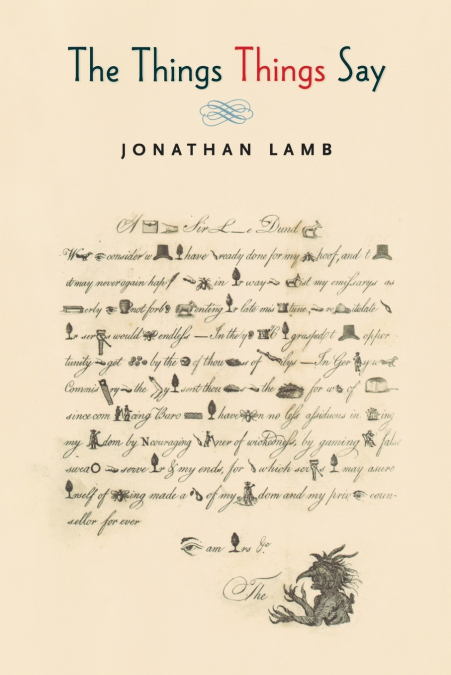 The Things Things Say
JONATHAN LAMB
A Sir L—e Dund
W consider w have ready done for my hoof, and t
it may never again hap in way st my emissarys as
erly not forb enting late onis tune, re italale
r ser s would endless — In the y B grasped t oppor
tunity got by the of thou s of bys — In Ger y w
Commis ry the y sent thou s the for w s of
since com cing Buro have en no less assiduous in ing
my dom by Ncouraging ner of wickedness, by gaining fals
swea serve r & my ends, for which ser s may asure
nself of ing made a of my dom and my priv coun-
sellor for ever
am rs &c
The